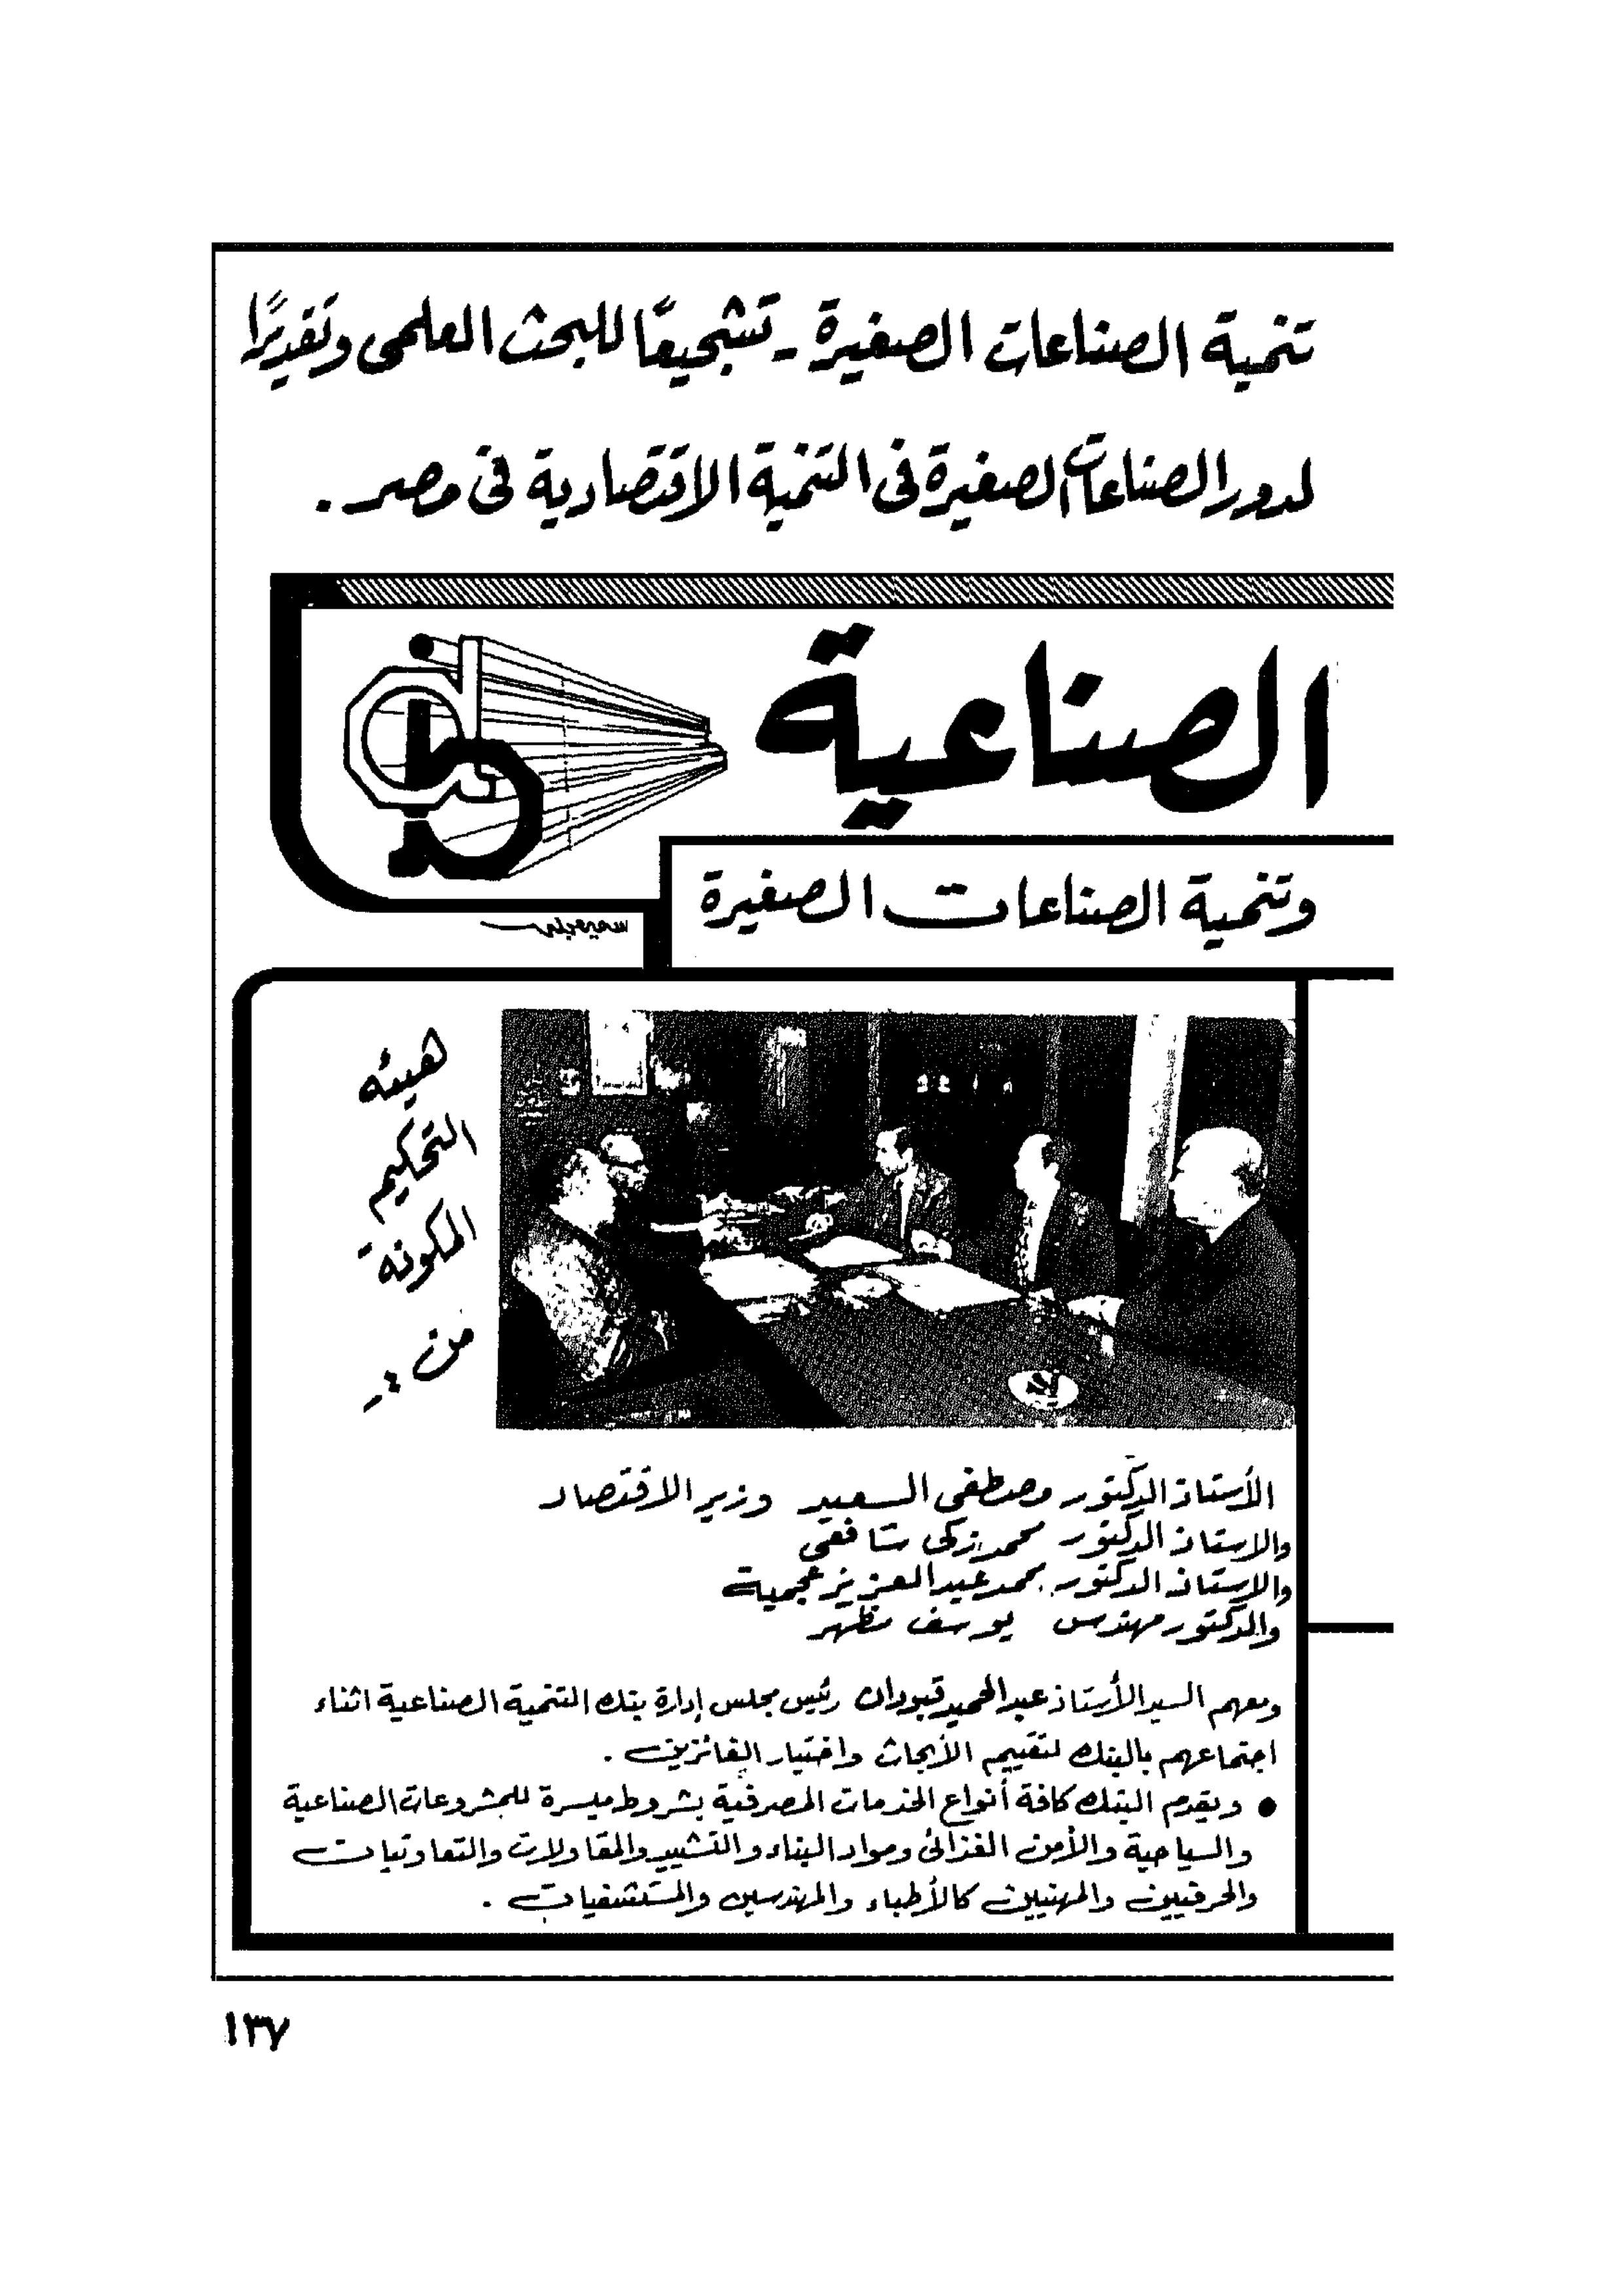 تنمية الصناعات الصغيرة - تشجيعًا للبحث العلمى وتقديرًا
لدور الصناعات الصغيرة فى التنمية الاقتصادية فى مصر .
الصناعية
وتنمية الصناعات الصغيرة
هيئه
التحكيم
المكونة
من :-
الأستاذ الدكتور مصطفى السعيد وزير الاقتصاد
والاستاذ الدكتور محمد زكى شافعى
والاستاذ الدكتور محمد عبد العزيز عجمية
والدكتور مهندس يوسف مظهر
ومعهم السيد الأستاذ عبد الحميد قبودان رئيس مجلس إدارة بنك التنمية الصناعية اثناء
اجتماعهم بالبنك لتقييم الأبحاث واختيار الفائزين .
● ويقدم البنك كافة أنواع الخدمات المصرفية بشروط ميسرة للمشروعات الصناعية
والسياحية والأمن الغذائى ومواد البناء والتشييد والمقاولات والتعاونيات
والحرفيين والمهنيين كالأطباء والمهندسين والمستشفيات .
١٣٧